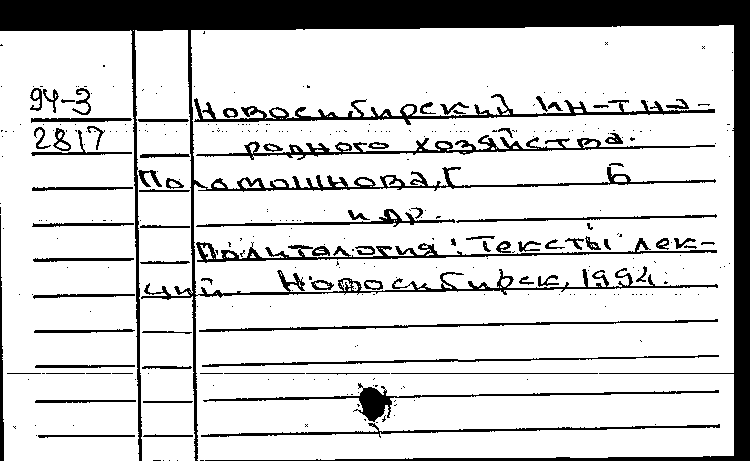 94-3 Новосибирский ин-т на-
2817 родного хозяйства.
Поломошнова, Г Б
и др.
Политология: Тексты лек-
ций. Новосибирск, 1994.